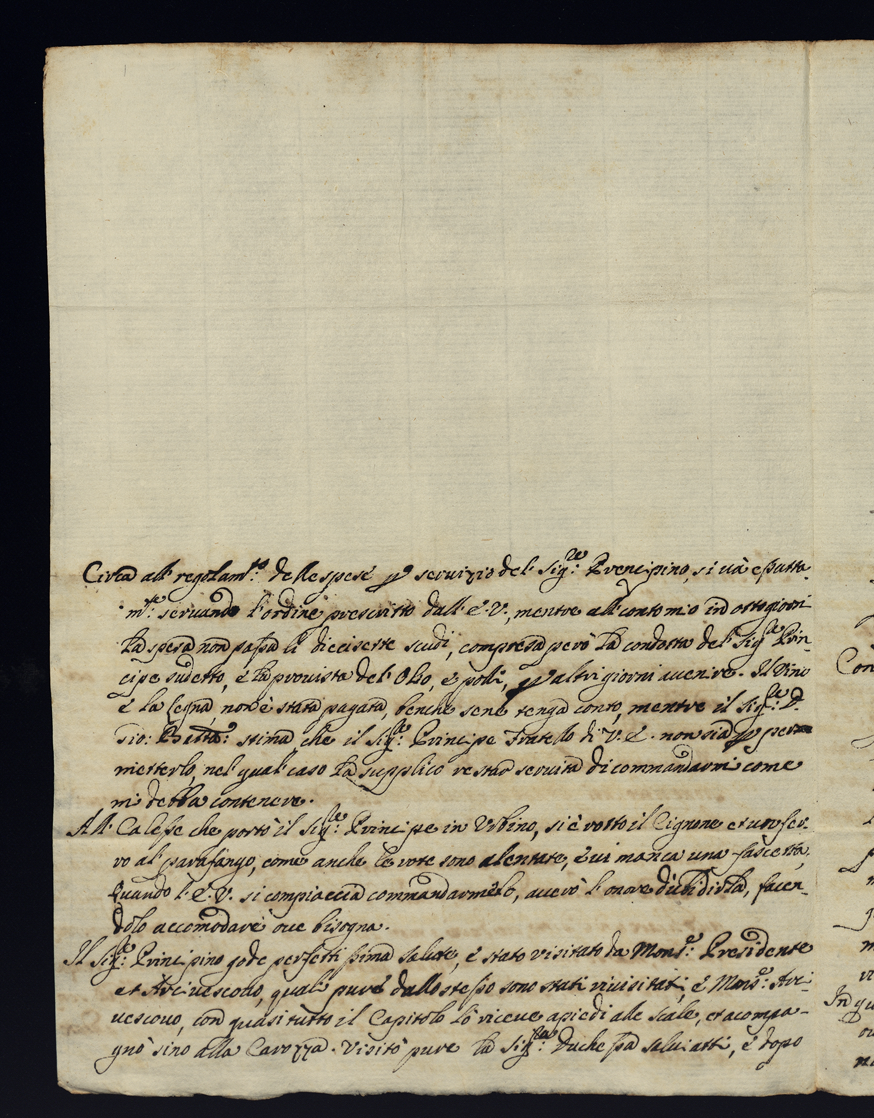 Circa all regolam:to delle spese p servizio del Sig:re Prencipino, si và esatta-
m:te servando l'ordine prescritto dall' E. V., mentre all conto mio in otto giorni
la spesa non passa li diecisette scudi, compresa però la condotta del Sig:re Prin-
cipe sudetto, e la provista del' Olio, e polli, p altri giorni avenire. Il Vino
e la Legna, non è stata pagata, benche sene tenga conto, mentre il Sig:re D.
Gio: Batta: stima, che il Sig:re Principe Fratello di V. E. non sia p per=
metterlo, nel qual caso la supplico restar servita di commandarmi come
mi debba contenere.
All Calesse che portò il Sig:re Principe in Urbino, si è rotto il Cignone et un fer-
ro al parafango, come anche le rote sono alentate, e vi manca una fascetta,
Quando l' E. V. si compiaccia commandarmelo, averò l'onore d'ubidirla, facen-
dolo accomodare ove bisogna.
Il Sig:re Principino gode perfettissima salute, è stato visitato da Mons:re Presidente
et Arcivescovo, quali pure dallo stesso sono stati rivisitati, e Mons:re Arci-
vescovo, con quasi tutto il Capitolo lo riceve apiedi alle scale, et acompa-
gnò sino alla Carozza. Visitò pure la Sig:ra Duchessa Salviatti, e dopo